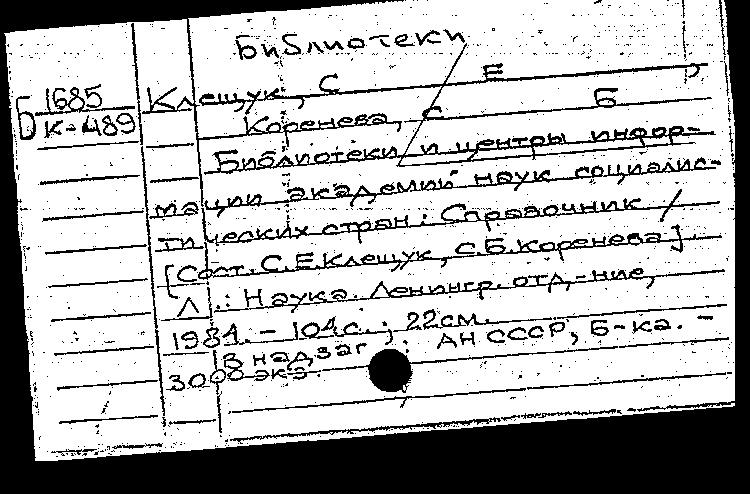 Библиотеки
Б 1685 Клещук, С Е ,
К-489 Коренева, С Б
Библиотеки и центры инфор-
мации академий наук социалис-
тических стран: Справочник /
[Сост. С.Е.Клещук, С.Б.Коренева].
Л.: Наука. Ленингр. отд,-ние,
1984. - 104с.; 22см.
В надзаг.: АН СССР, Б-ка. -
3000 экз.